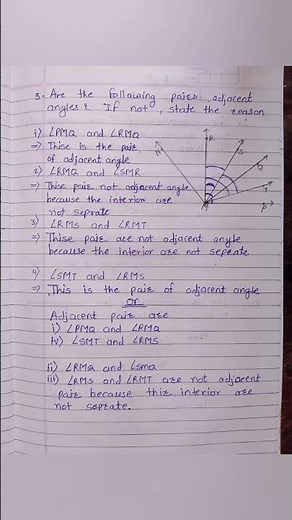 3. Are the following pairs adjacent
angles? If not, state the reason
i) ∠PMQ and ∠RMQ
⇒ Thise is the pair
of adjacent angle
2) ∠RMQ and ∠SMR
⇒ Thise paie not adjacent angle
because the interior are
not seprate
3) ∠RMS and ∠RMT
⇒ Thise pair are not adjacent angle
because the interior are not seperate
4) ∠SMT and ∠RMS
⇒ This is the pair of adjacent angle
or
Adjacent pair are
i) ∠PMQ and ∠RMQ
iv) ∠SMT and ∠RMS
ii) ∠RMQ and ∠smq
iii) ∠RMS and ∠RMT are not adjacent
pair because thir interior are
not seprate.
R
S
Q
T
P
M
N